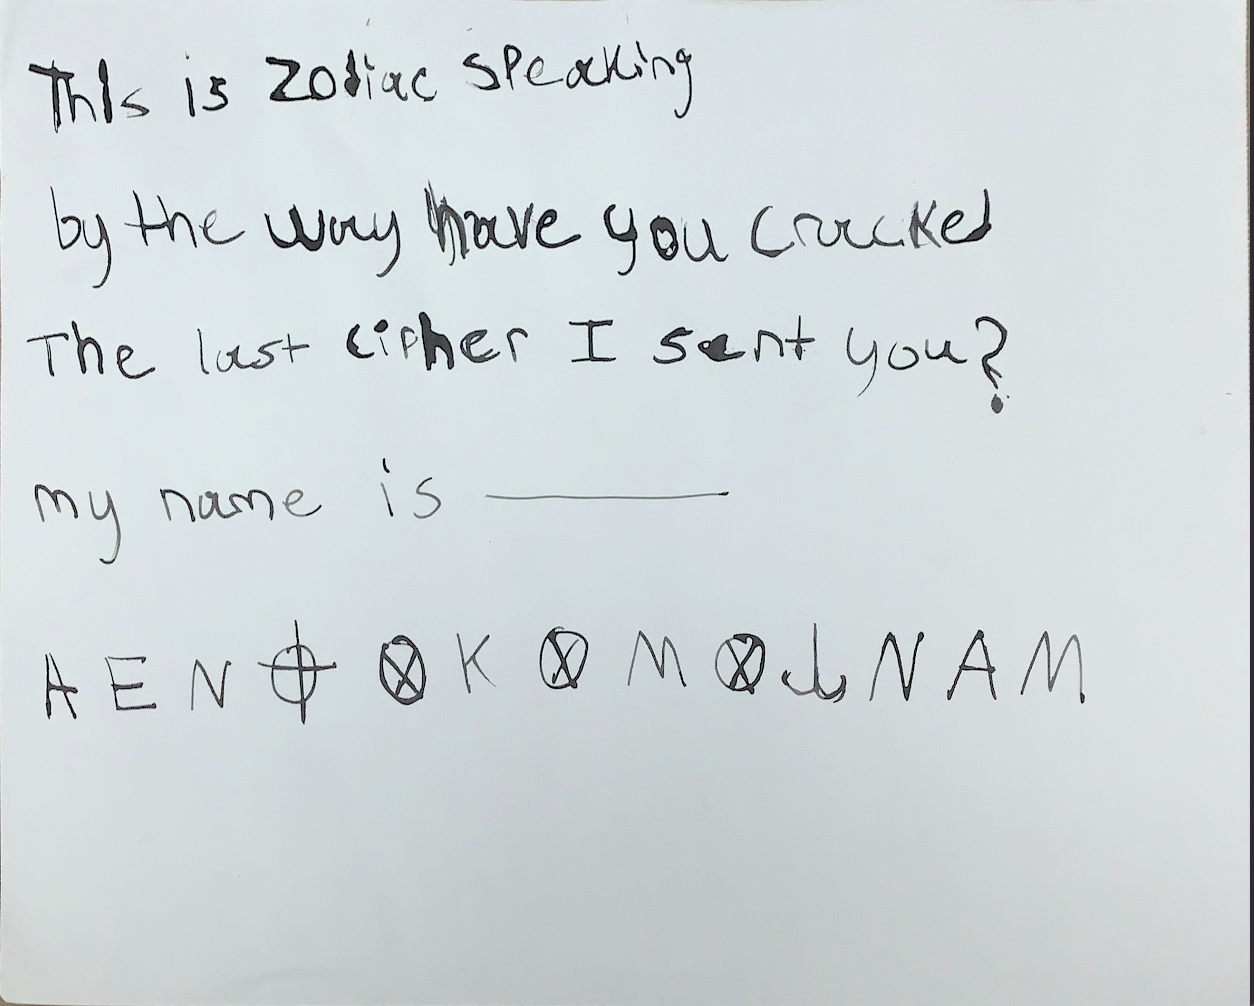 This is Zodiac speaking
by the way have you cracked
The last cipher I sent you?
my name is ————
A E N ⌖ ⊗ K ⊗ M ⊗ ⚓ N A M